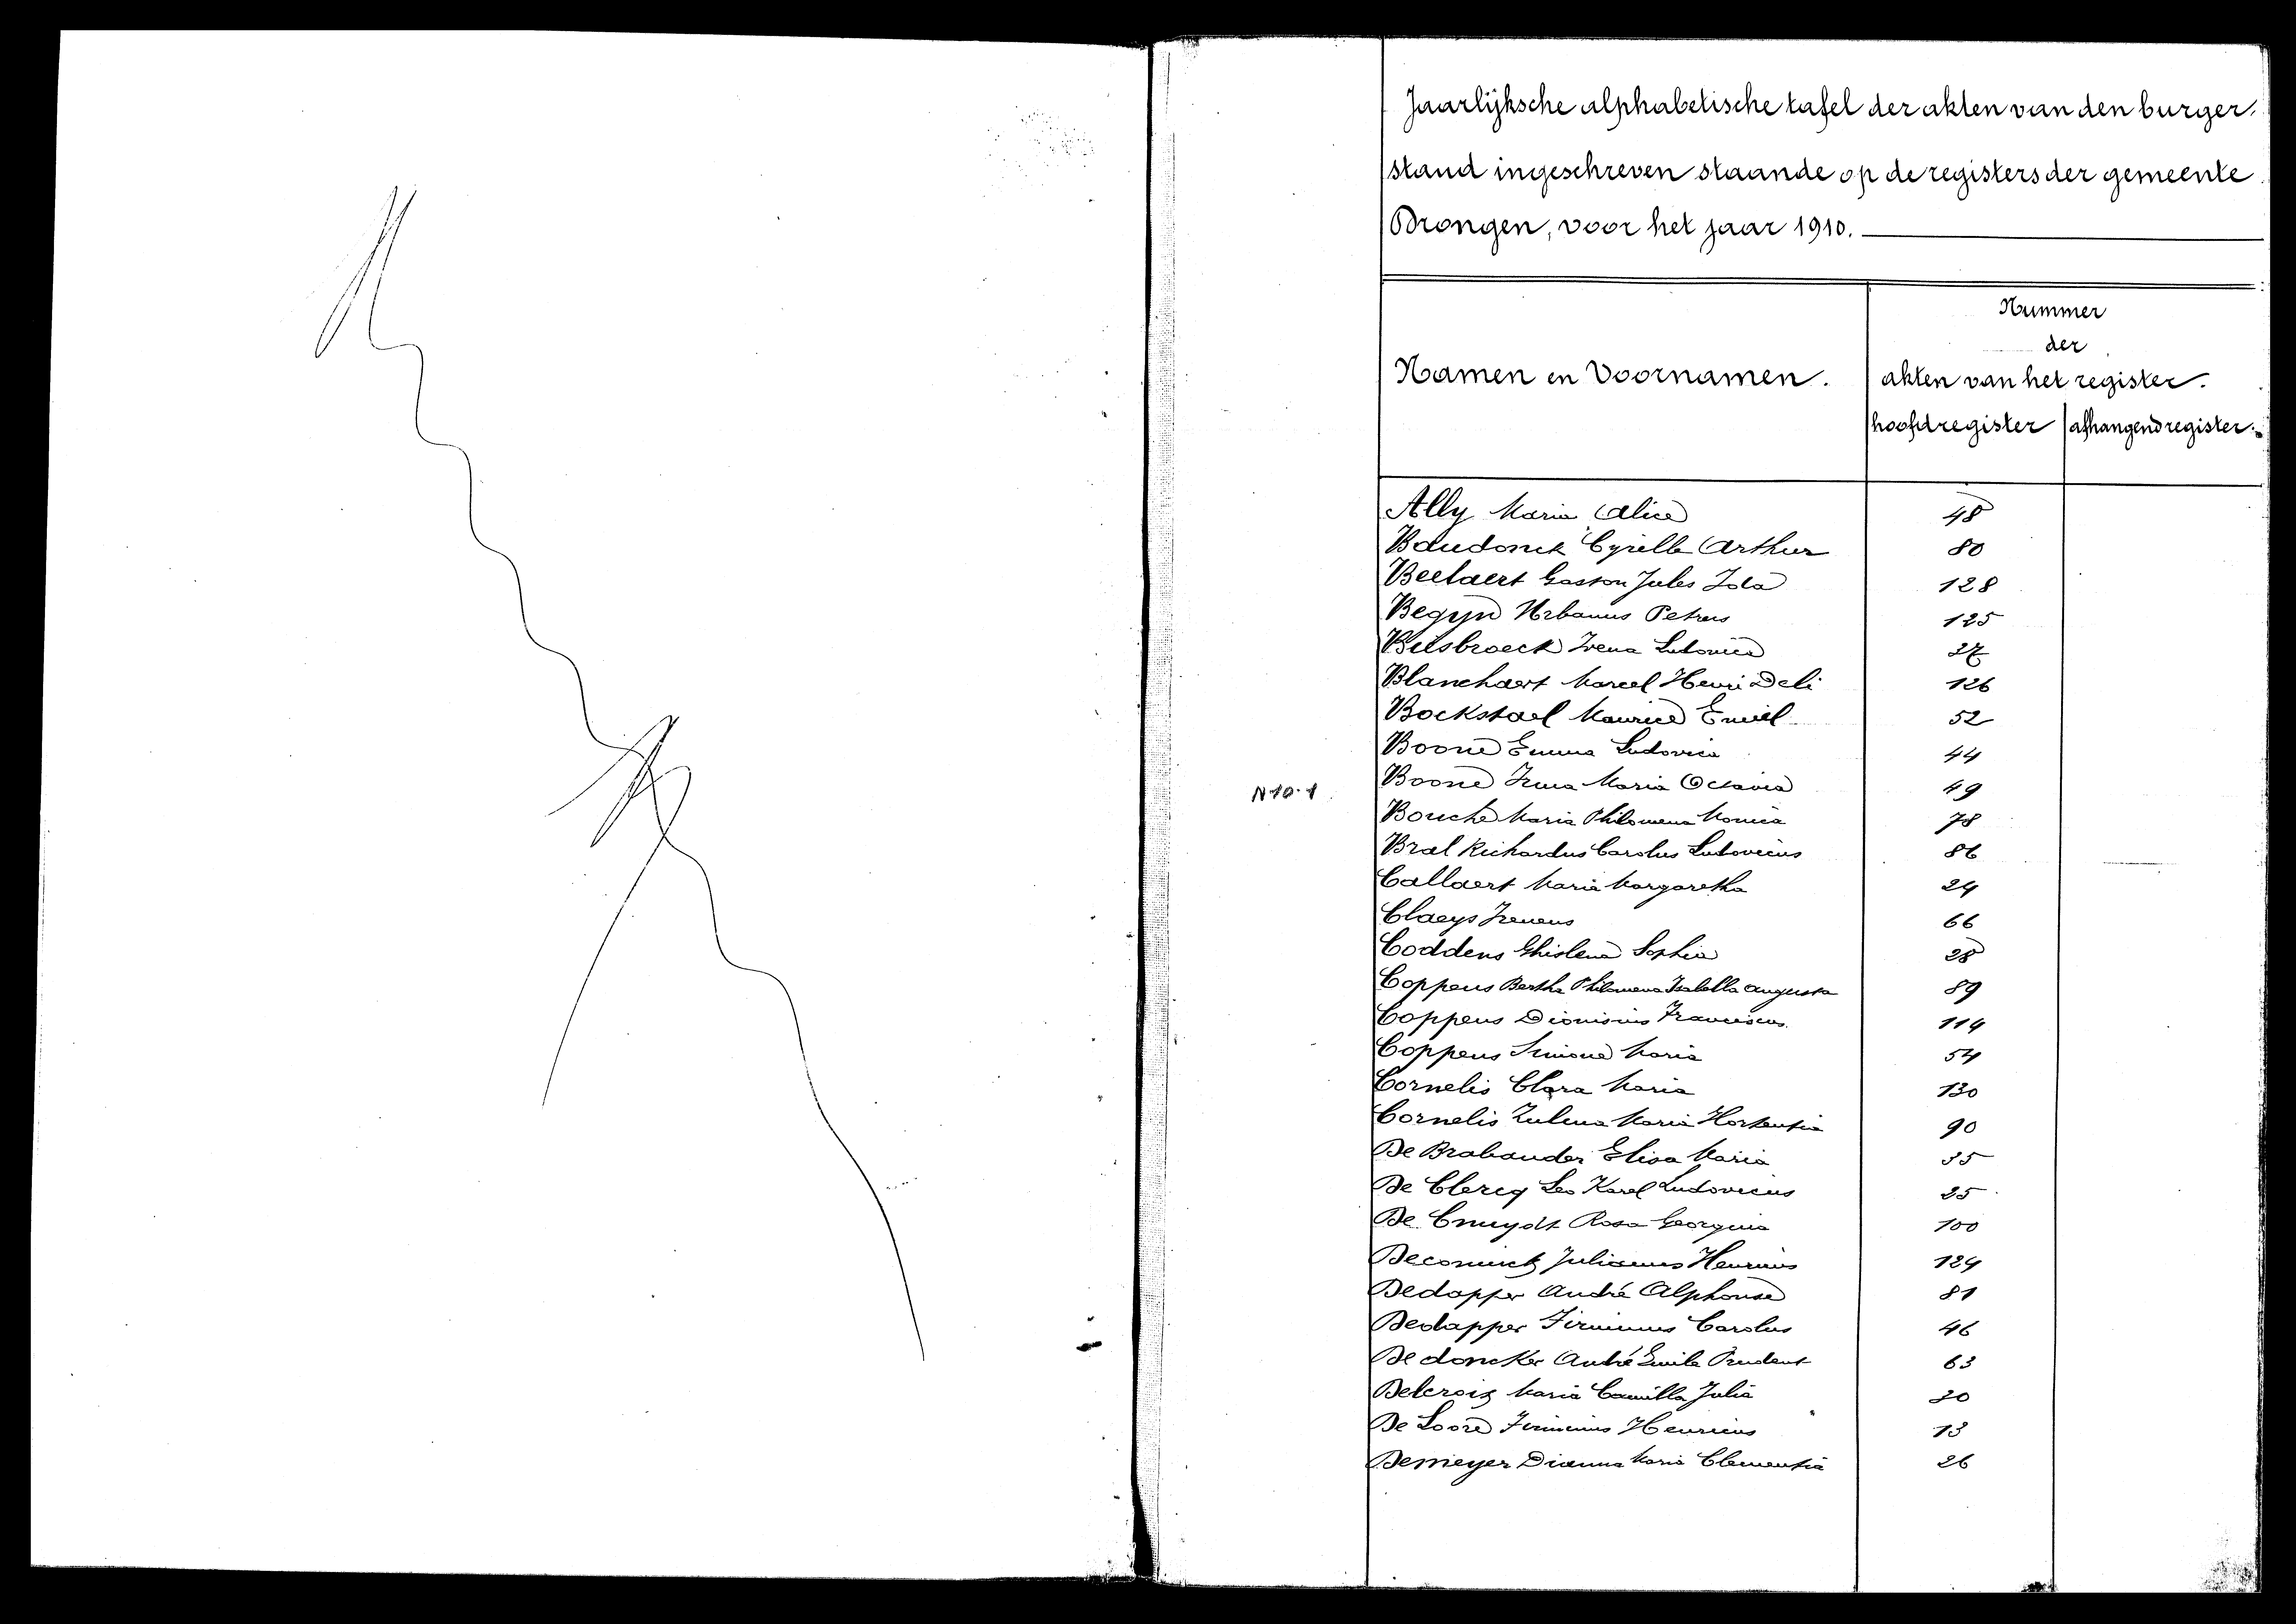 Jaarlijksche alphabetische tafel der akten van den burger-
stand ingeschreven staande op de registers der gemeente
Drongen, voor het jaar 1910.
Nummer
der
Namen en Voornamen.
akten van het register.
hoofdregister afhangend register.
Ally Maria Alice 48
Baudonck Cyrille Arthur 80
Beelaert Gaston Jules Zola 128
Begyn Urbanus Petrus 125
Beirsbroeck Irena Ludovica 27
Blanchaert Marcel Henri Deli 126
Bockstael Maurice Emiel 52
Boone Emma Ludovica 44
Boone Irma Maria Octavia 49
N 10.1
Bouche Maria Philomena Monica 78
Bral Richardus Carolus Ludovicus 86
Callaert Maria Margaretha 24
Claeys Ireneus 66
Coddens Ghislena Sophia 28
Coppens Bertha Philomena Isabella Augusta 89
Coppens Dionisius Franciscus 114
Coppens Simone Maria 54
Cornelis Clara Maria 130
Cornelis Zulma Maria Hortentia 90
De Brabander Elisa Maria 35
De Clercq Leo Karel Ludovicus 25
De Cnuydt Rosa Georgina 100
Deconinck Julianus Henricus 124
Dedapper André Alphonse 81
Dedapper Firminus Carolus 46
De doncker André Emile Prudent 63
Delcroix Maria Camilla Julia 30
De Loore Firminus Henricus 13
Demeyer Dianna Maria Clementia 26